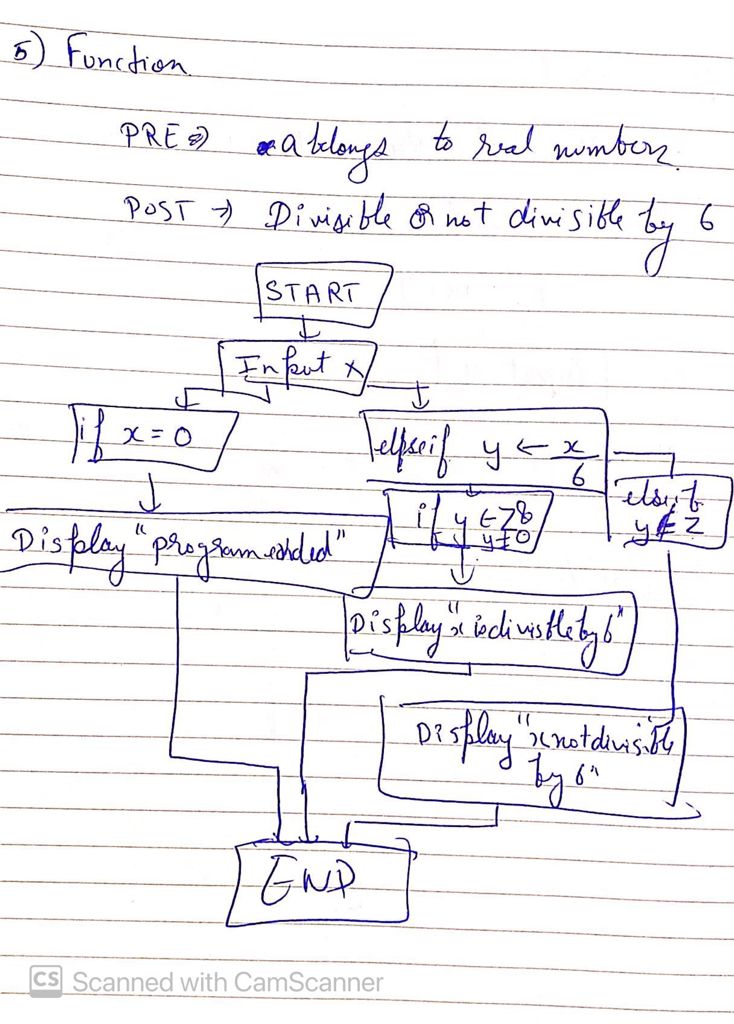 5) Function
PRE ⇒ a belongs to real numbers.
POST → Divisible or not divisible by 6
START
Input x
if x = 0
elseif y ← x/6
if y ∈ Z &
y ≠ 0
elseif
y ∉ Z
Display "program ended"
Display "x is divisible by 6"
Display "x not divisible
by 6"
END
CS Scanned with CamScanner